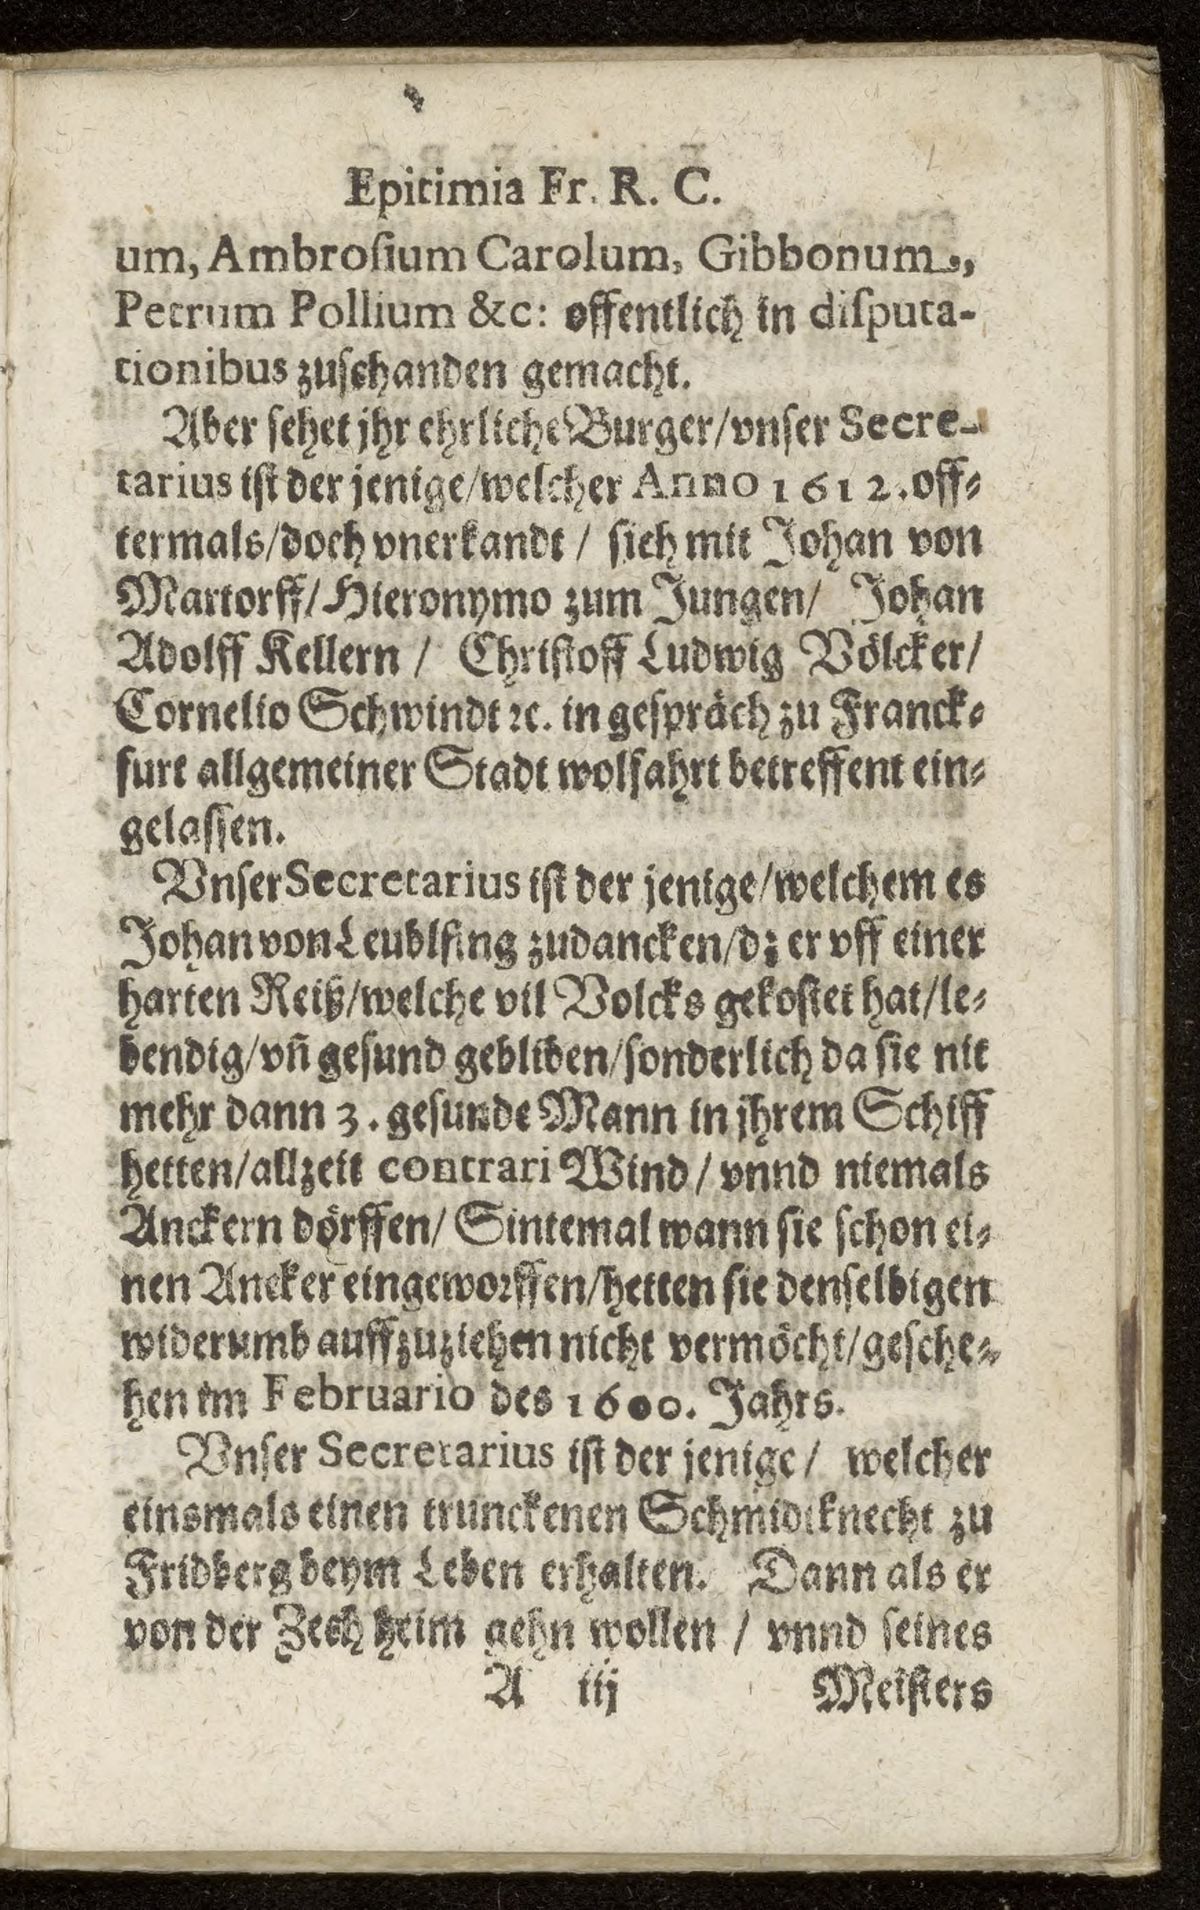 Epitimia Fr. R. C.
um, Ambrosium Carolum, Gibbonum,
Petrum Pollium &c: offentlich in disputa-
tionibus zuschanden gemacht.
Aber sehet jhr ehrliche Burger/vnser Secre-
tarius ist der jenige/welcher Anno 1612. off-
termals/doch vnerkandt / sich mit Johan von
Martorff/Hieronymo zum Jungen/ Johan
Adolff Kellern / Christoff Ludwig Völcker/
Cornelio Schwindt ꝛc. in gespräch zu Franck-
furt allgemeiner Stadt wolfahrt betreffent ein-
gelassen.
Vnser Secretarius ist der jenige/welchem es
Johan von Leublfing zudancken/dz er vff einer
harten Reiß/welche vil Volcks gekostet hat/le-
bendig/vñ gesund gebliben/sonderlich da sie nit
mehr dann 3. gesunde Mann in jhrem Schiff
hetten/allzeit contrari Wind / vnnd niemals
Anckern dörffen/ Sintemal wann sie schon ei-
nen Ancker eingeworffen/hetten sie denselbigen
widerumb auffzuziehen nicht vermöcht/gesche-
hen im Februario des 1600. Jahrs.
Vnser Secretarius ist der jenige / welcher
einsmals einen trunckenen Schmidtknecht zu
Fridberg beym Leben erhalten. Dann als er
von der Zech heim gehn wollen / vnnd seines
A iij Meisters